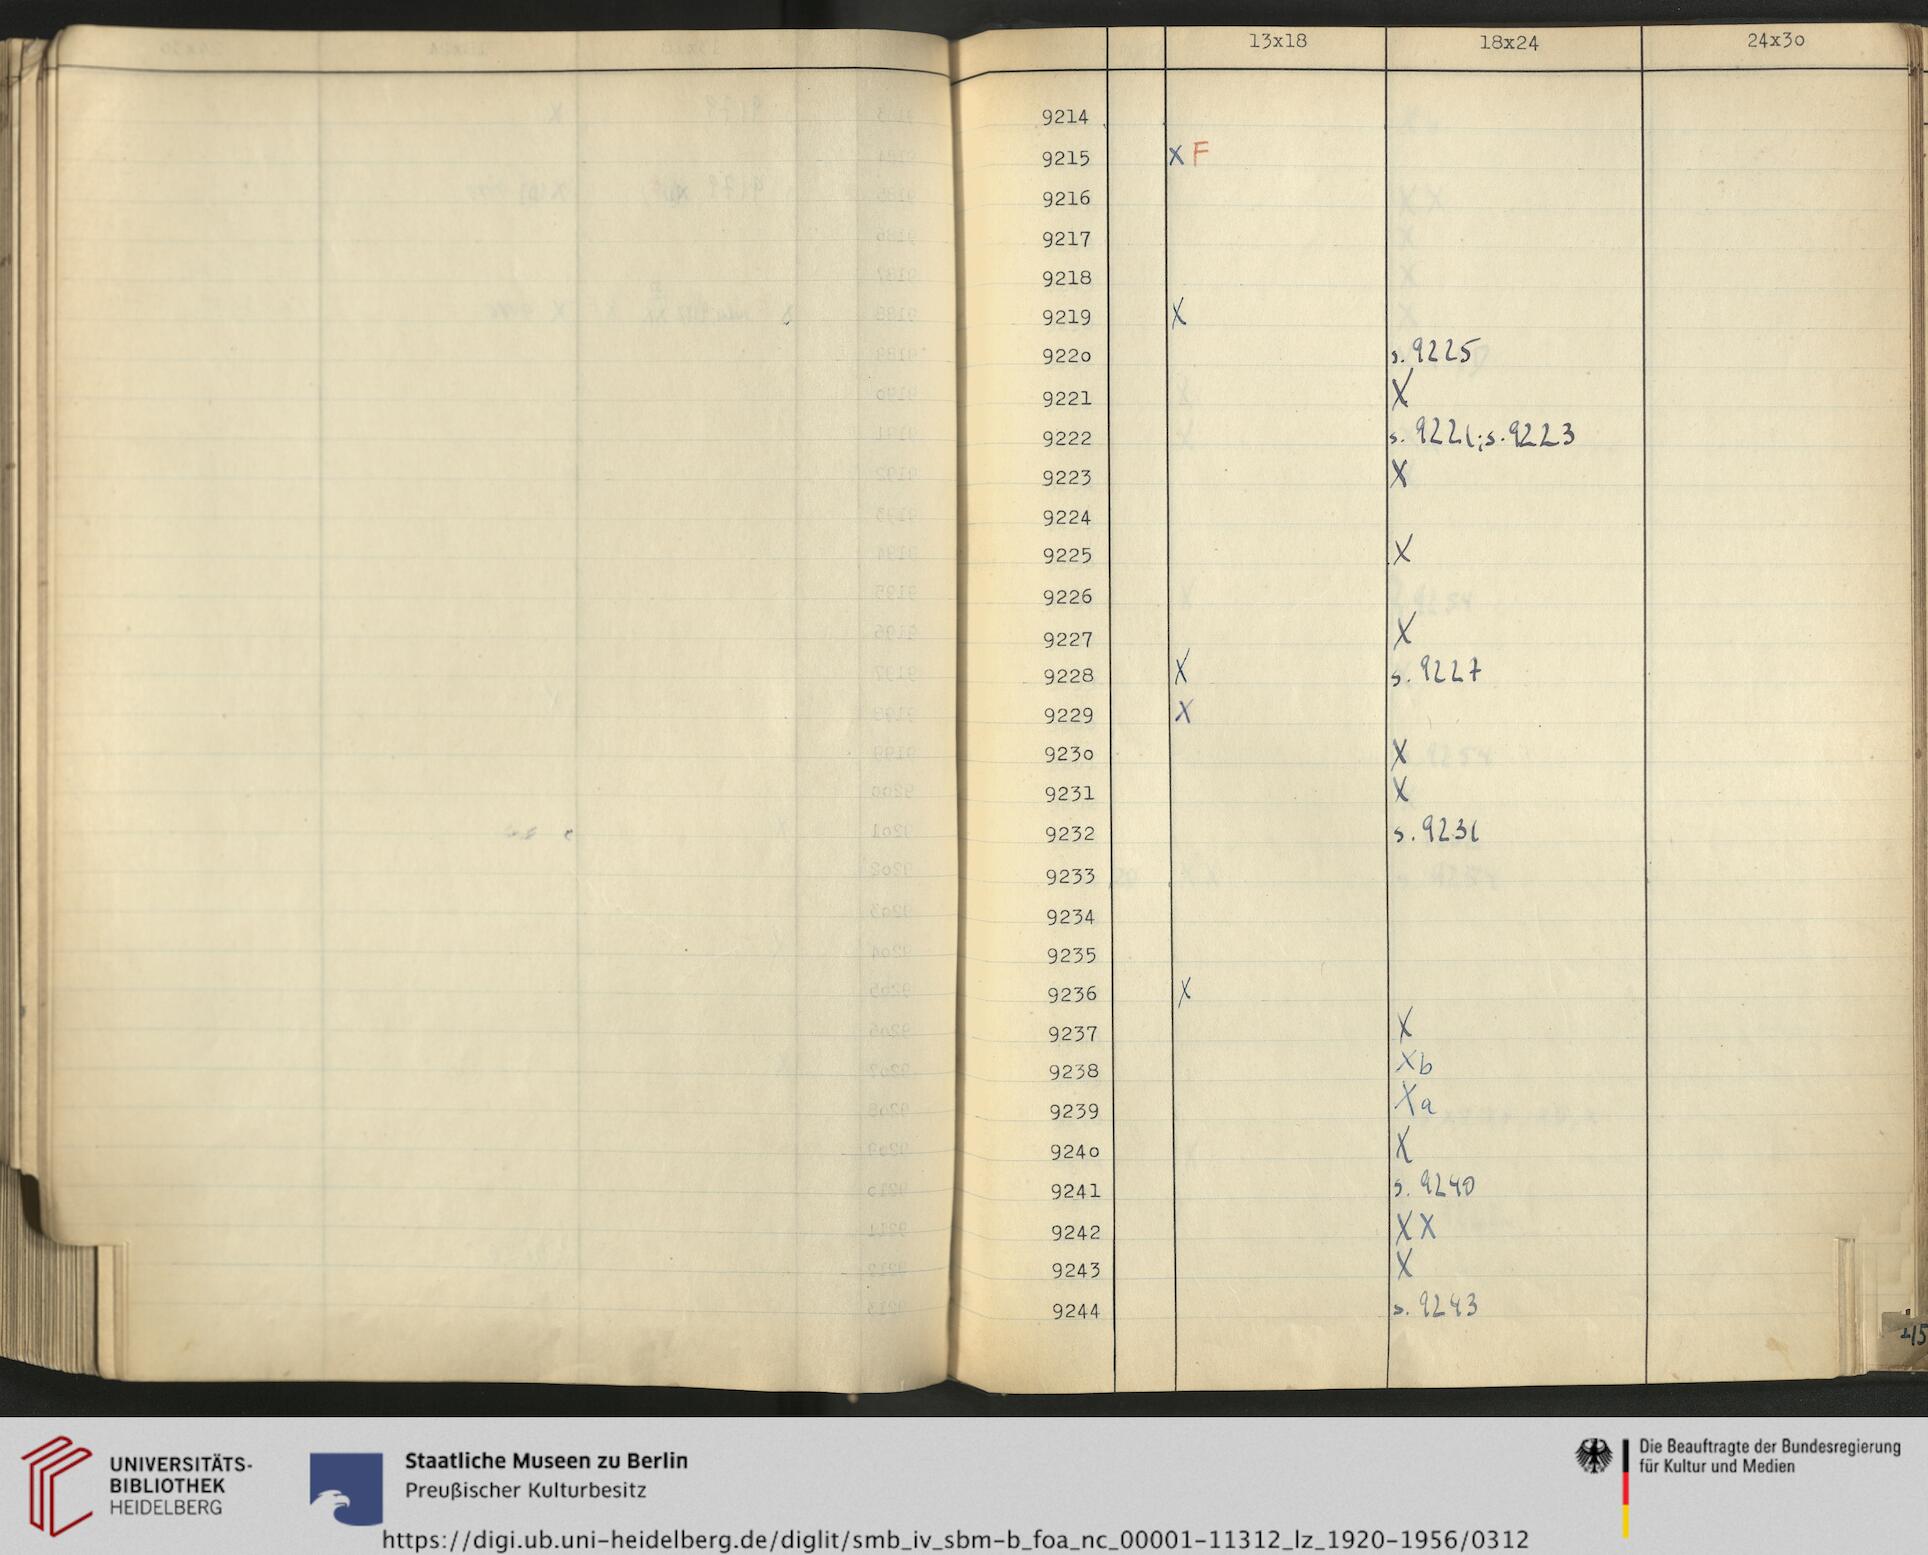 13x18 18x24 24x3o
9214
9215 x F
9216
9217
9218
9219 X
922o s. 9225
9221 X
9222 s. 9221; s. 9223
9223 X
9224
9225 X
9226
9227 X
9228 X s. 9227
9229 X
923o X
9231 X
9232 s. 9231
9233
9234
9235
9236 X
9237 X
9238 Xb
9239 Xa
924o X
9241 s. 9240
9242 XX
9243 X
9244 s. 9243
UNIVERSITÄTS-
BIBLIOTHEK
HEIDELBERG
Staatliche Museen zu Berlin
Preußischer Kulturbesitz
Die Beauftragte der Bundesregierung
für Kultur und Medien
https://digi.ub.uni-heidelberg.de/diglit/smb_iv_sbm-b_foa_nc_00001-11312_lz_1920-1956/0312